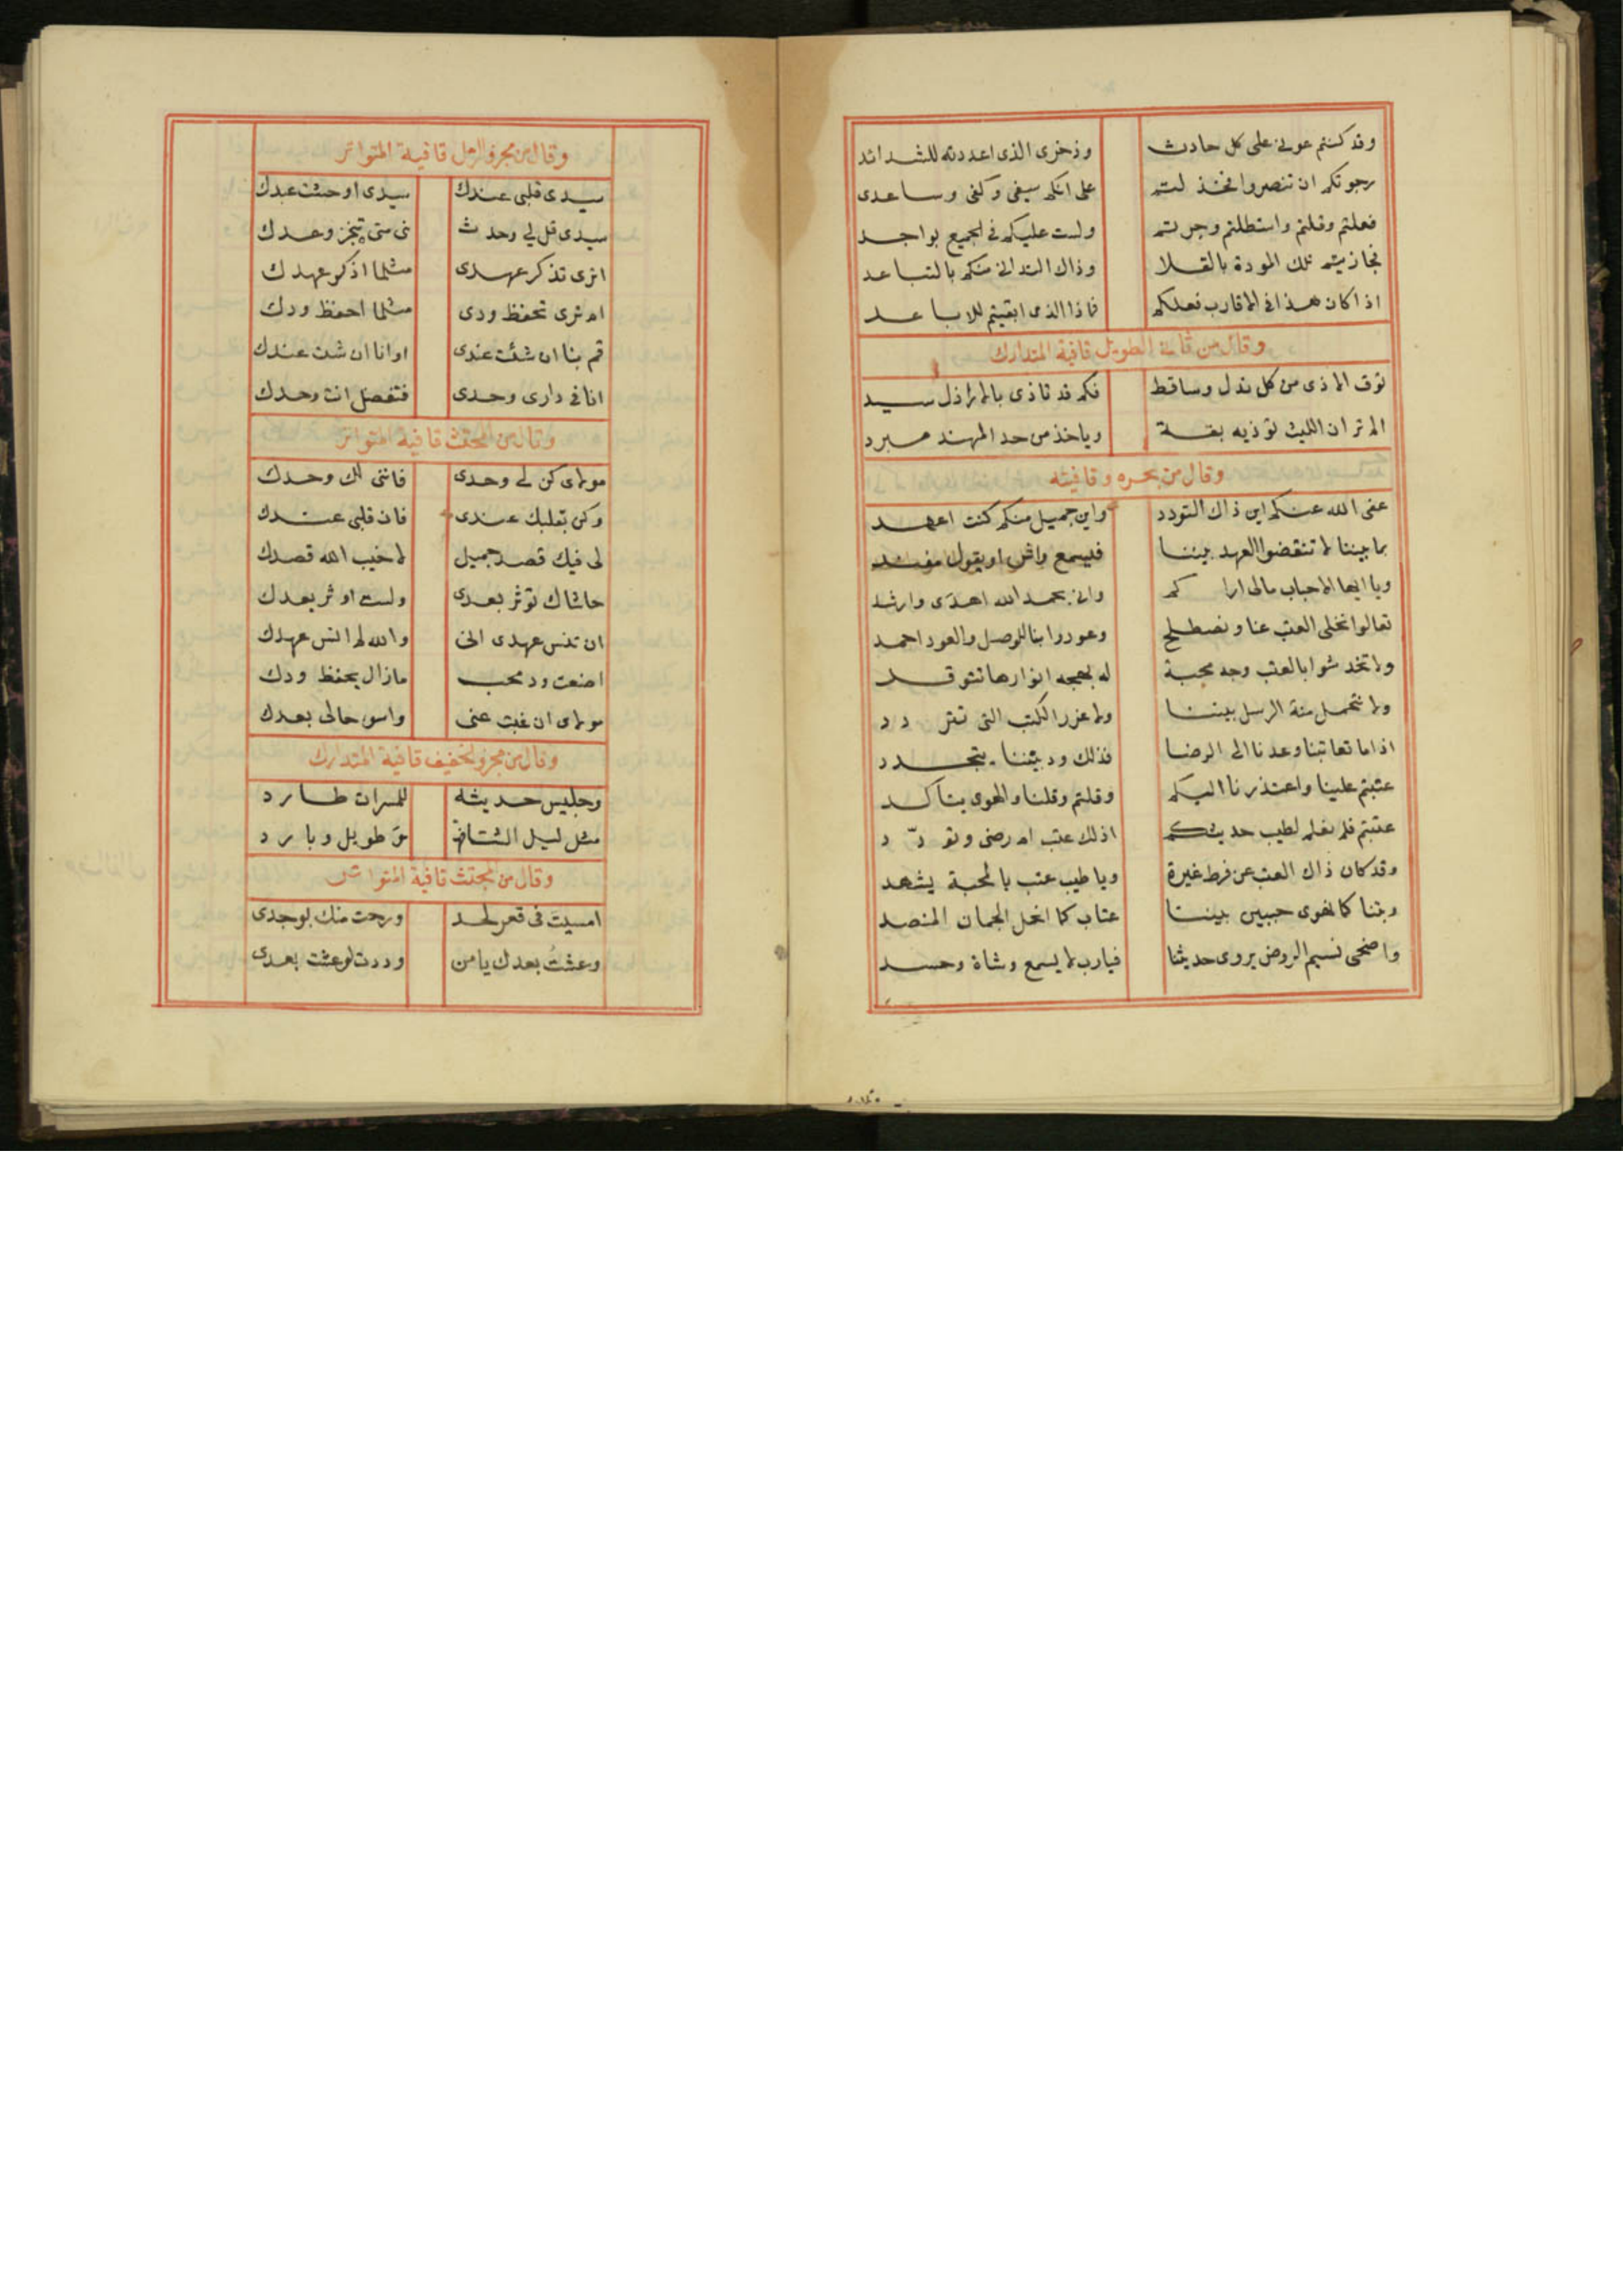 وقد كنتم عونى على كل حادث وذخرى الذى اعددته للشدائد
رجوتكم ان تنصروا فخذلتم على انكم سيفى وكفى وساعدى
فعلتم وقلتم واستطلتم وجرتم ولست عليكم فى الجميع بواجد
فجازيتم تلك المودة بالقلا وذاك التدانى منكم بالتباعد
اذا كان هذا فى الاقارب فعلكم فماذا الذى ابقيتم للاباعد
وقال من ثانى الطويل قافية المتدارك
توق الاذى من كل نذل وساقط فكم قد تاذى بالاراذل سيد
الم تر ان الليث توذيه بقة وياخذ من حد المهند مبرد
وقال من بحره وقافيته
عفى الله عنكم اين ذاك التودد واين جميل منكم كنت اعهد
بما بيننا لا تنقضوا العهد بيننا فيسمع واش او يقول مفند
ويا ايها الاحباب مالى اراكم وانى بحمد الله اهدى وارشد
تعالوا نخلى العتب عنا ونصطلح وعودوا بنا للوصل والعود احمد
ولا تخدشوا بالعتب وجه محبة له بهجه انوارها تتوقد
ولا نتحمل منة الرسل بيننا ولا غرر الكتب التى تتردد
اذا ما تعاتبنا وعدنا الى الرضا فذلك ود بيننا يتجدد
عتبتم علينا واعتذرنا اليكم وقلتم وقلنا والهوى يتاكد
عتبتم فلم نعلم لطيب حديثكم اذلك عتب ام رضى وتودّد
وقد كان ذاك العتب عن فرط غيرة ويا طيب عتب بالمحبة يشهد
وبتنا كما نهوى حبيبين بيننا عتاب كما انحل الجمان المنضد
واضحى نسيم الروض يروى حديثنا فيارب لا يسمع وشاة وحسد
وقال من مجزو الرمل قافية المتواتر
سيدى قلبى عندك سيدى اوحشت عبدك
سيدى قل لى وحدث نى متى تنجز وعدك
اترى تذكر عهدى مثلما اذكر عهدك
ام ترى تحفظ ودى مثلما احفظ ودك
قم بنا ان شئت عندى او انا ان شئت عندك
انا فى دارى وحدى فتفضل انت وحدك
وقال من المجتث قافية المتواتر
مولاى كن لى وحدى فاننى لك وحدك
وكن بقلبك عندى فان قلبى عندك
لى فيك قصد جميل لا خيب الله قصدك
حاشاك توثر بعدى ولست اوثر بعدك
ان تنس عهدى انى والله لم انس عهدك
اضعت ود محب ما زال يحفظ ودك
مولاى ان غبت عنى واسو حالى بعدك
وقال من مجزو الخفيف قافية المتدارك
وجليس حديثه للمسرات طارد
مثل ليل الشتاء فهو طويل وبارد
وقال من المجتث قافية المتواتر
امسيت فى قعر لحد ورحت منك بوجدى
وعشت بعدك يا من وددت لو عشت بعدى